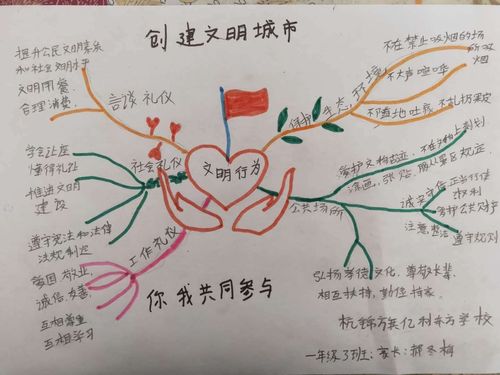 创建文明城市
提升公民文明素养
和社会文明水平
文明用餐
合理消费
言谈礼仪
学会让座
懂得礼让
推进文明
建设
社会礼仪
遵守宪法和法律
法规制定
爱国敬业,
诚信,友善,
互相尊重
互相学习
工作礼仪
文明行为
保护生态,环境,
不在禁止吸烟的场
所吸
烟
不大声喧哗
不随地吐痰
不乱扔果皮
公共场所
爱护文物古迹,
涂画,张贴
诚实守信
正当行使
权利
爱护公共
注意
遵守规则
弘扬孝德文化,尊敬长辈,
相互扶持,勤俭持家
你我共同参与
杭锦旗亿利东方学校
一年级3班:家长:郝冬梅